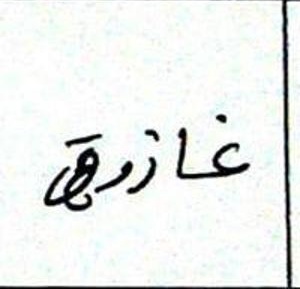 غازوقي